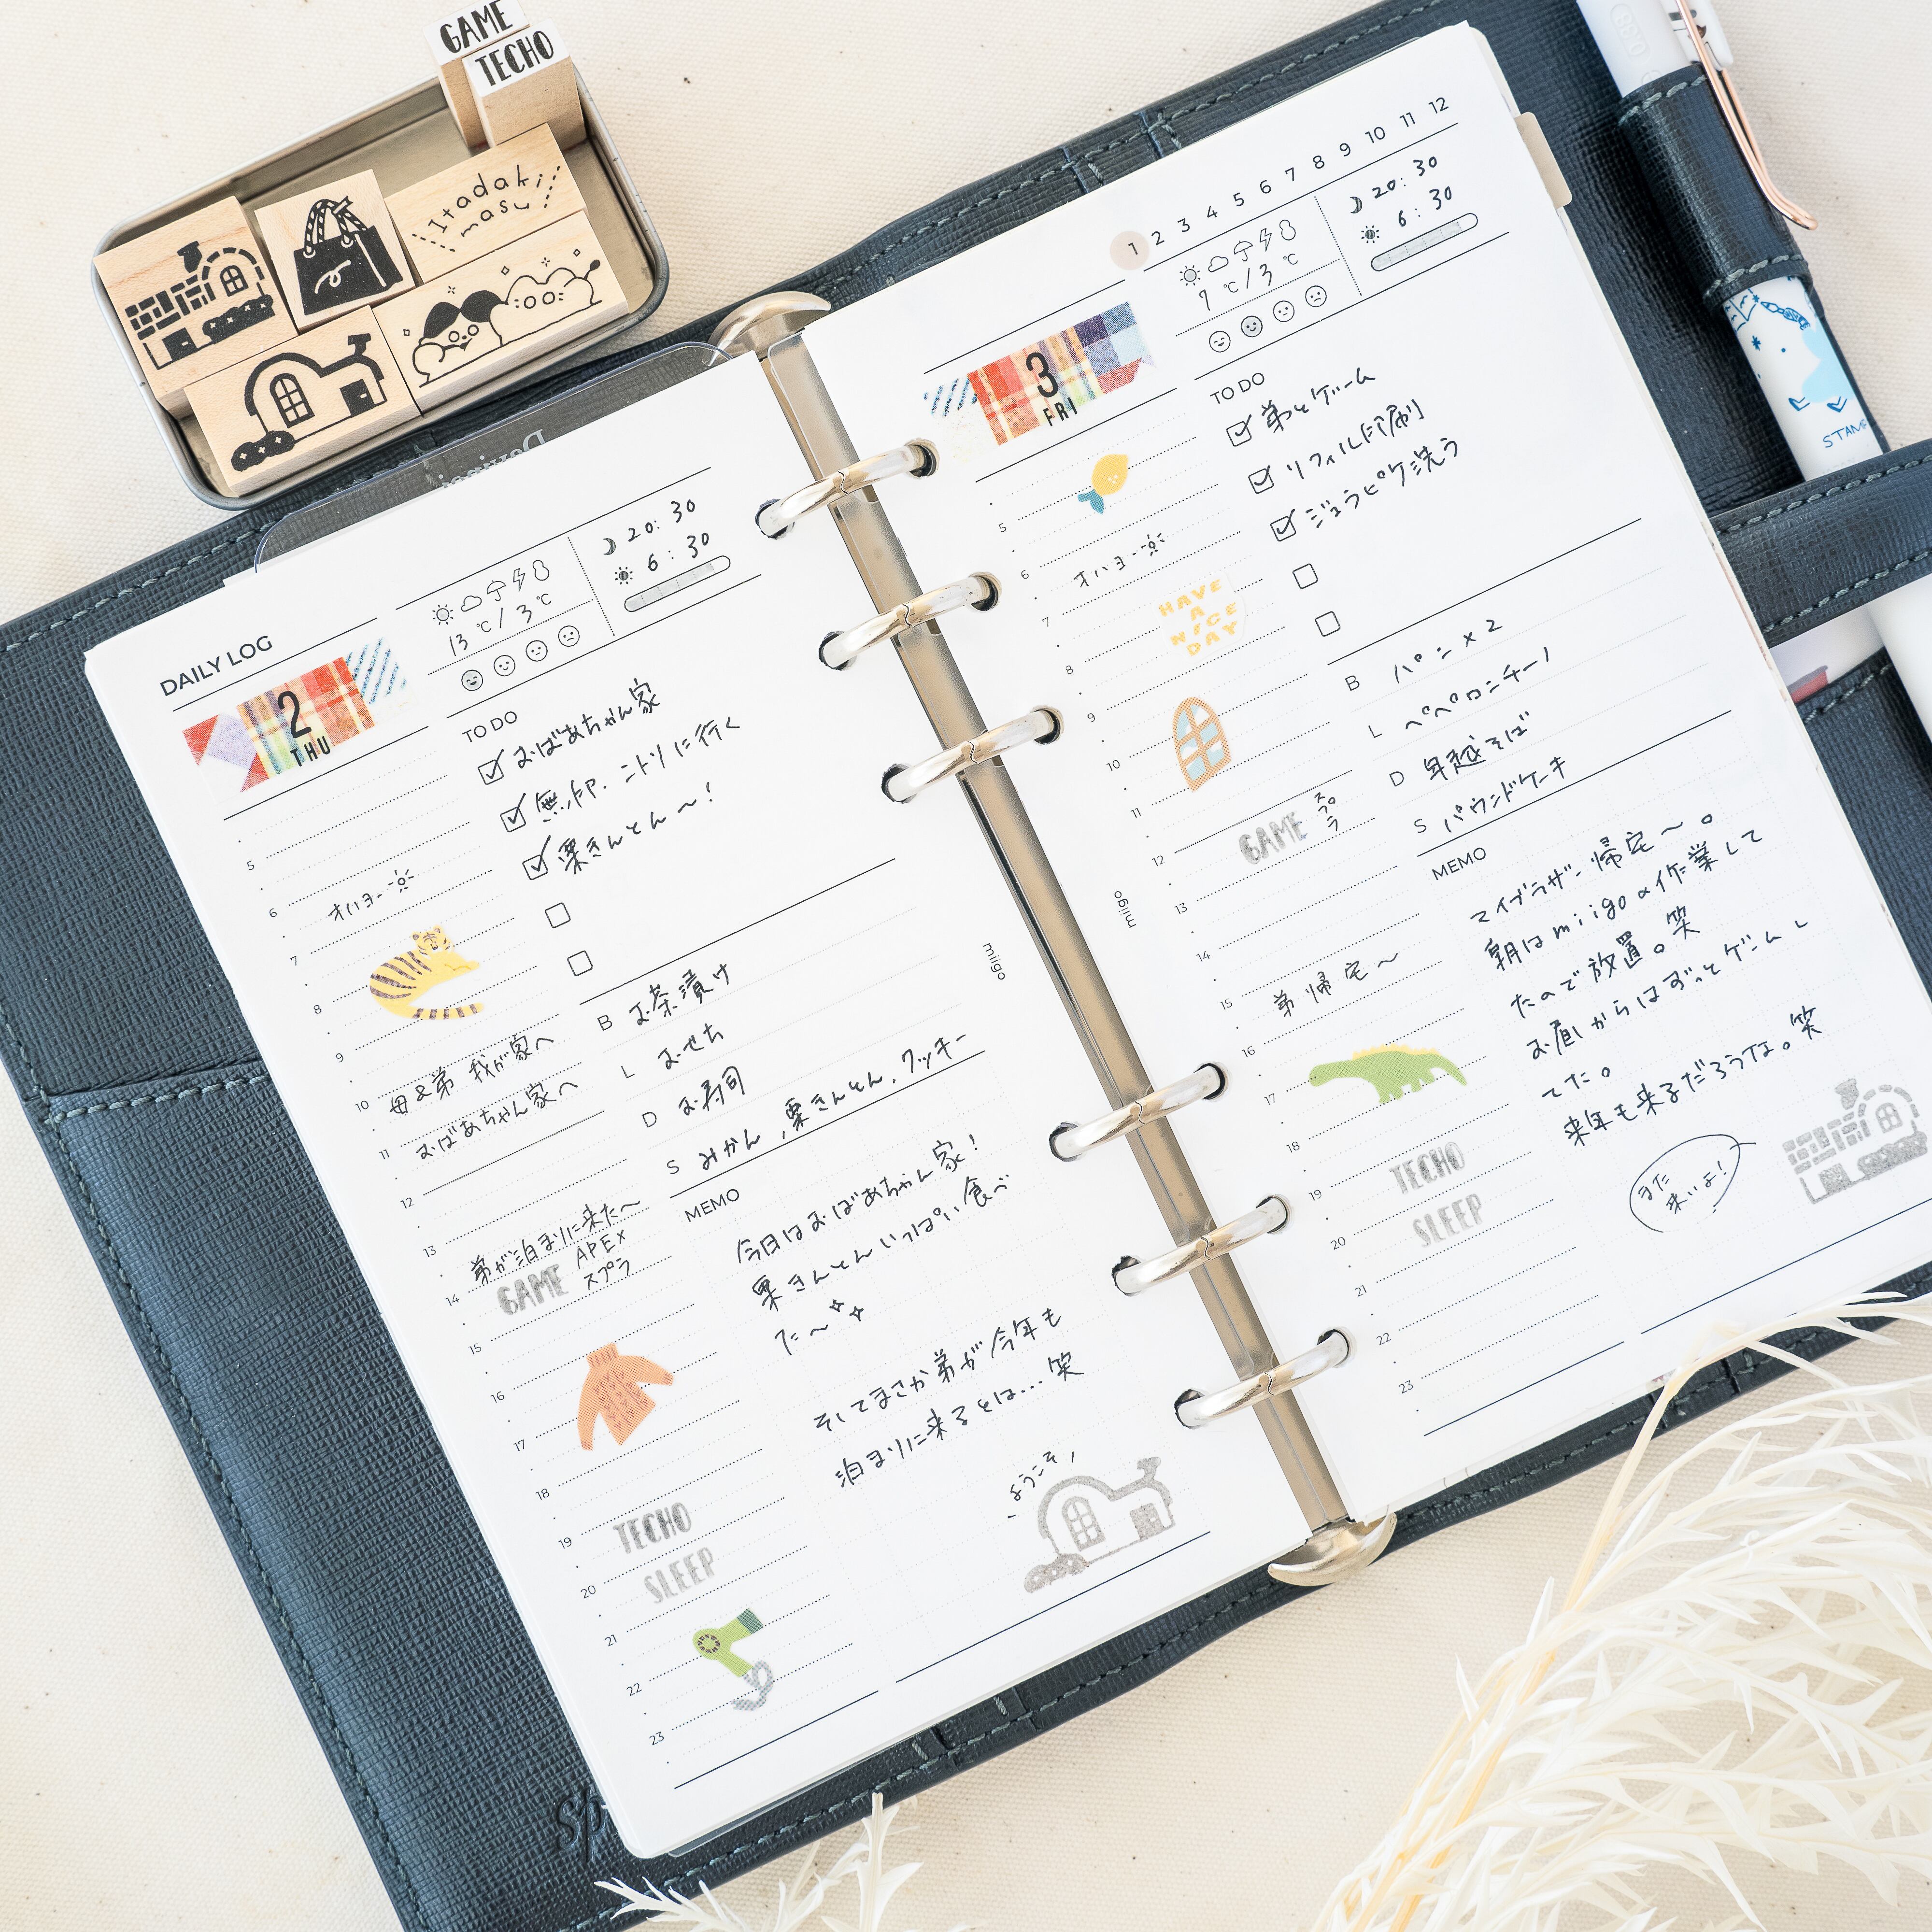 GAME
TECHO
Itadaki
masu
DAILY LOG
2
THU
13 ℃ / 3 ℃
20:30
6:30
TO DO
おばあちゃん家
無印、ニトリに行く
栗きんとん〜!
5
6
オハヨー
7
8
9
母&弟 我が家へ
10
おばあちゃん家へ
11
12
13
弟が泊まりに来た〜
GAME APEX
スプラ
14
15
16
17
18
19
TECHO
20
SLEEP
21
22
23
B お茶漬け
L おせち
D お寿司
S みかん,栗きんとん,クッキー
MEMO
今日はおばあちゃん家!
栗きんとんいっぱい食べ
た〜
そしてまさか弟が今年も
泊まりに来るとは...笑
ようこそ,
miigo
1 2 3 4 5 6 7 8 9 10 11 12
3
FRI
7 ℃ / 3 ℃
20:30
6:30
TO DO
弟とゲーム
リフィル印刷
ジェラピケ洗う
5
6
オハヨー
7
HAVE
A
NICE
DAY
8
9
10
11
12
GAME スプラ
13
14
15
弟帰宅〜
16
17
18
19
TECHO
20
SLEEP
21
22
23
B パン×2
L ペペロンチーノ
D 年越そば
S パウンドケーキ
MEMO
マイブラザー帰宅〜。
朝はmiigoの作業して
たので放置。笑
お昼からはずっとゲームし
てた。
来年も来るだろうな。笑
また
来いよ!
miigo